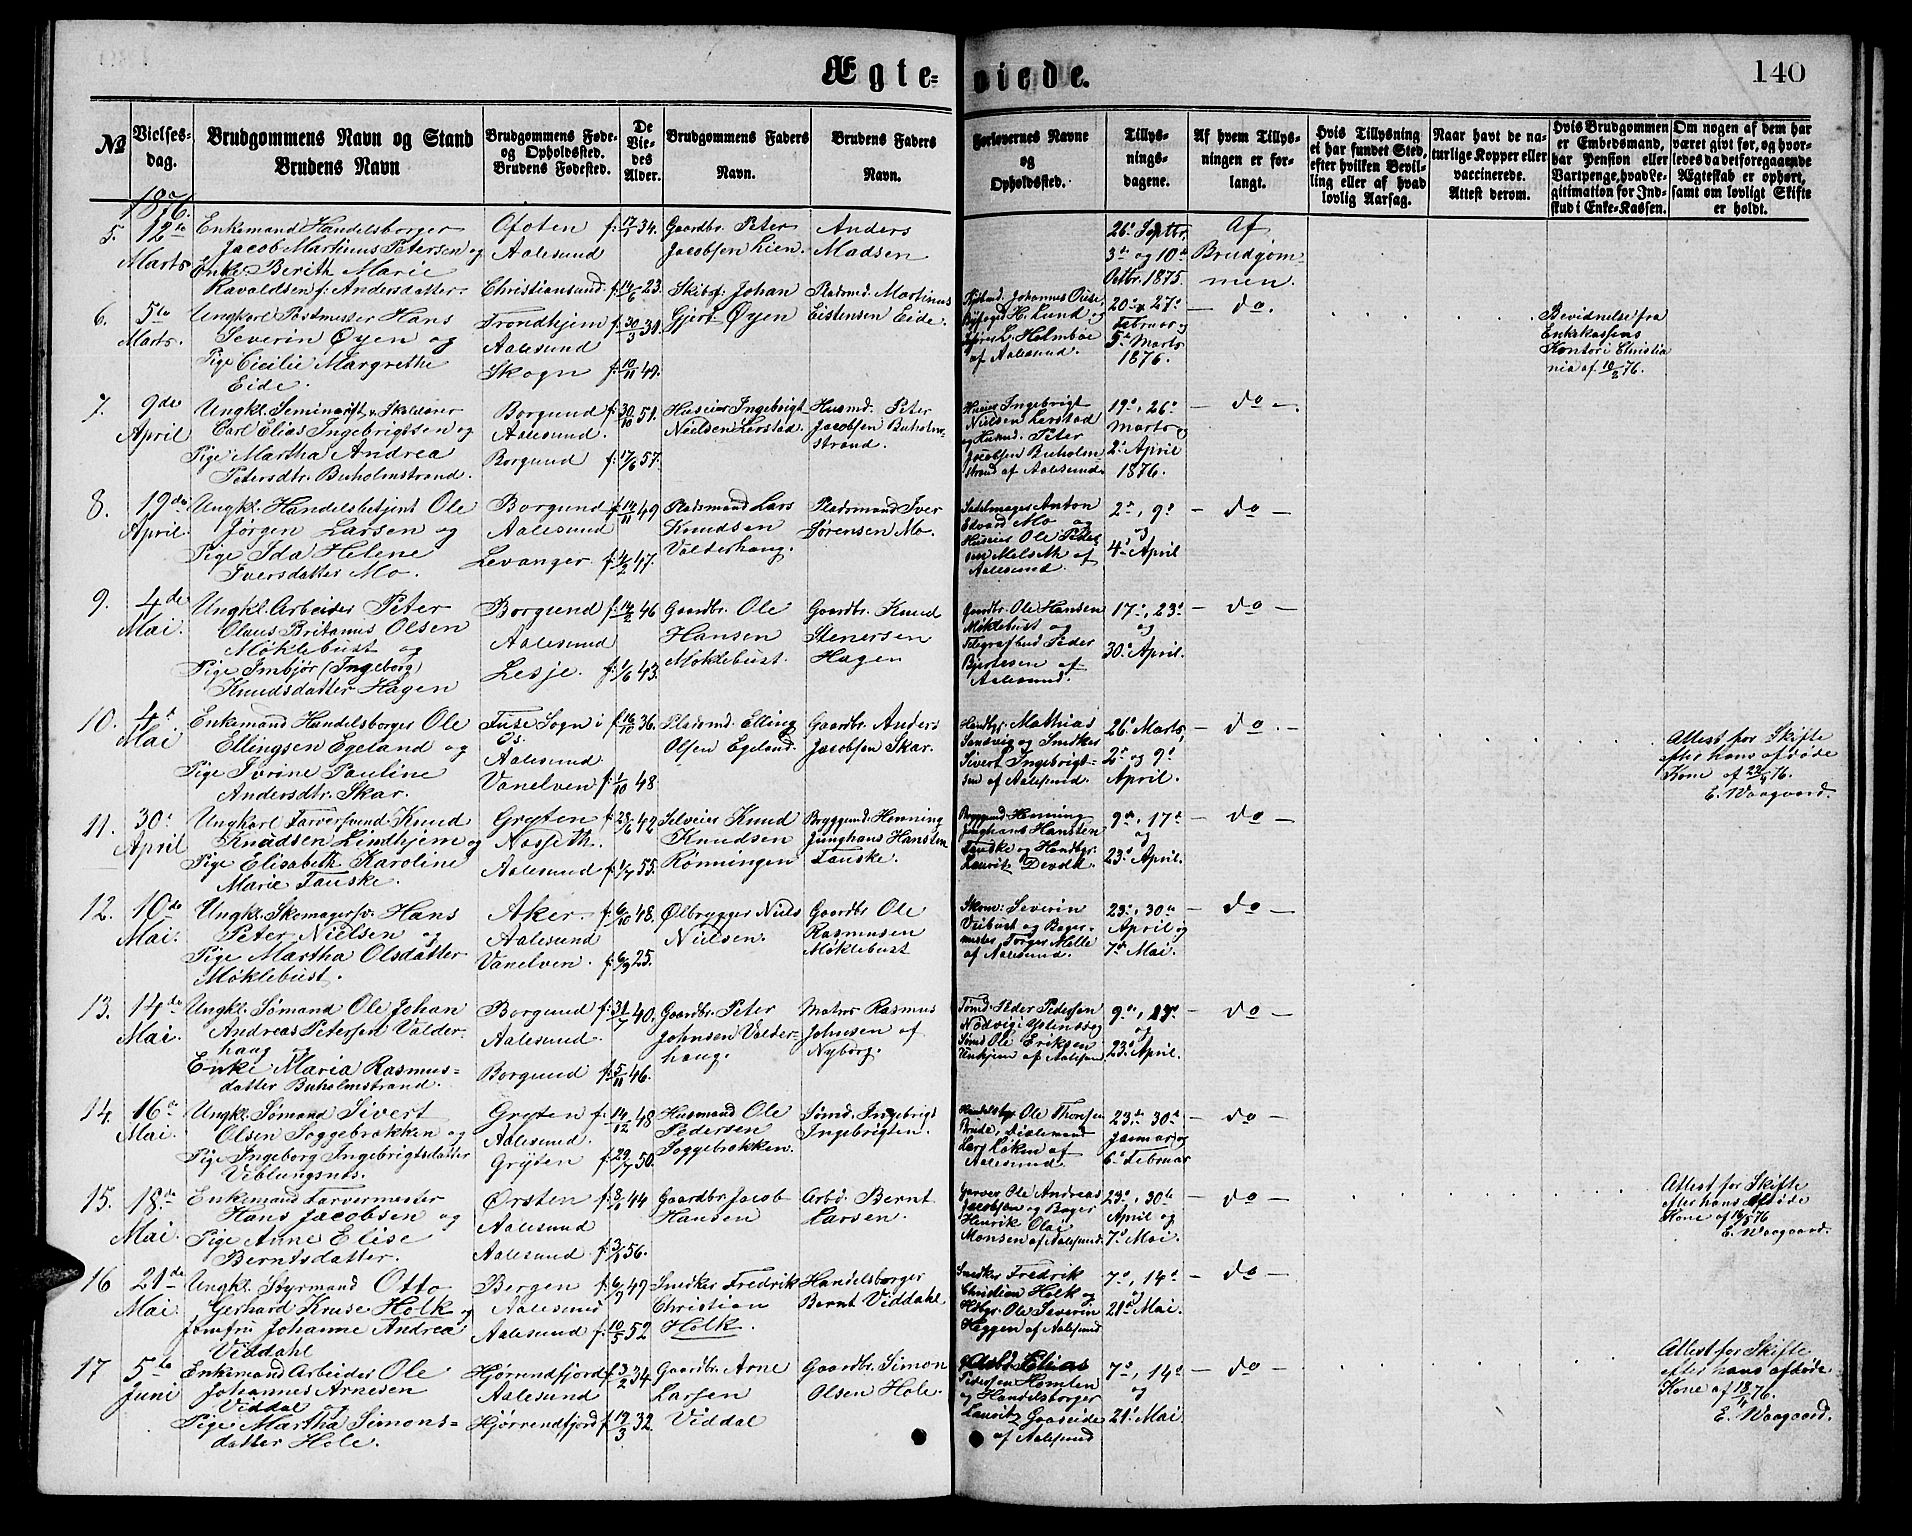 Ægte- viede.
140
No
Vielses-
dag.
Brudgommens Navn og Stand
Brudens Navn
Brudgommens Føde-
og Opholdssted.
Brudens Fødested.
De
Vie-
des
Alder.
Brudgommens Faders
Navn.
Brudens Faders
Navn.
Forlovernes Navne
og
Opholdssted.
Tillys-
nings-
dagene.
Af hvem Tillys-
ningen er for-
langt.
Hvis Tillysning
ei har fundet Sted,
efter hvilken Bevil-
ling eller af hvad
lovlig Aarsag.
Naar havt de na-
turlige Kopper eller
vaccinerede.
Attest derom.
Hvis Brudgommen
er Embedsmand,
har Pension eller
Vartpenge, hvad Le-
gitimation for Ind-
skud i Enke-Kassen.
Om nogen af dem har
været givt før, og hvor-
ledes da det foregaaende
Ægteskab er ophørt,
samt om lovligt Skifte
er holdt.
1876.
5.
12te
Marts
Enkemand Handelsborger
Jacob Martinus Petersen og
Enke Berith Marie
Ravaldsen f. Andersdatter.
Ofoten
Aalesund
Christiansund
f. 17/7 34.
f. 14/6 23.
Gaardbr. Peter
Jacobsen Lien.
Anders
Madsen
26de Septbr.
3de og 10de
Octbr. 1875.
Af
Brudgom-
men.
6.
5te
Marts.
Ungkarl Postmester Hans
Severin Øyen og
Pige Cicilie Margrethe
Eide.
Trondhjem
Aalesund
Skogn
f. 30/3 31.
f. 10/11 49.
Skibsf. Johan
Gjert Øyen
Pladsmd. Martinus
Eistensen Eide.
Byfoged H. Lund og
L. Holmboe
af Aalesund.
20de, 27de
Februar og
5te Marts
1876.
— do.
Bevidnelse fra
Enkekassens
Kontor i Christia
nia af 10/2 76.
7.
9de
April
Ungkl. Seminarist, Skolelærer
Carl Elias Ingebrigtsen og
Pige Martha Andrea
Petersdtr. Buholmstrand.
Borgund
Aalesund.
Borgund
f. 30/10 51.
f. 17/6 57.
Huseier Ingebrigt
Nielsen Lerstad.
Husmd. Peter
Jacobsen Buholm-
strand.
Huseier Ingebrigt
Nielsen Lerstad
og Husmd. Peter
Jacobsen Buholm
strand af Aalesund.
19de, 26de
Marts og
2den April
1876.
— do —
8.
19de
April.
Ungkl. Handelsbetjent Ole
Jørgen Larsen og
Pige Ida Helene
Iversdatter Mo.
Borgund
Aalesund
Levanger
f. 14/11 49
f. 4/2 47.
Pladsmand Lars
Knudsen
Valderhaug.
Pladsmand Iver
Sørensen Mo.
Sadelmager Anton
Edvard Mo og
Huseier Ole Peter
sen Melseth af
Aalesund.
2den, 9de
og
4de April
— do —
9.
4de
Mai.
Ungkl. Arbeider Peter
Claus Britanus Olsen
Møklebust og
Pige Imbjør (Ingeborg)
Knudsdatter Hagen
Borgund
Aalesund
Lesje.
f. 14/2 46
f. 1/6 43.
Gaardbr. Ole
Hansen
Møklebust.
Gaardbr. Knud
Stenersen
Hagen
Gaardbr. Ole Hansen
Møklebust og
Telegrafbud Peder
Bjertesen af
Aalesund.
17de, 23de
og
30de April.
— do —
10.
4de
Mai
Enkemand Handelsborger Ole
Ellingsen Egeland og
Pige Ivrine Pauline
Andersdtr. Skar.
Fuse Sogn i
Os.
Aalesund.
Vanelven
f. 16/10 36.
f. 1/10 48.
Pladsmd. Elling
Olsen Egeland.
Gaardbr. Anders
Jacobsen Skar.
Handbgr. Mathias
Sandvig og Snedker
Sivert Ingebrigt-
sen af Aalesund.
26de Marts,
2den og 9de
April.
— do. —
Attest for Skifte
efter hans afdøde
Kone af 22/4 76.
E. Waagaard.
11.
30te
April
Ungkarl Farversvend Knud
Knudsen Lindhjem og
Pige Elisabeth Karoline
Marie Tanske.
Gryten
Nosseth.
Aalesund
f. 28/6 42
f. 1/7 55.
Selveier Knud
Knudsen
Rønningen
Bryggmd. Henning
Junghans Hansten
Tanske.
Bryggmd Henning
Junghans Hansten
Tanske og Handbgr.
Lauritz Devold.
9de, 17de
og
23de April.
— do —
12.
10de
Mai.
Ungkl. Skomagersv. Hans
Peter Nielsen og
Pige Martha Olsdatter
Møklebust.
Aker
Aalesund
Vanelven.
f. 6/10 48.
f. 6/9 25.
Ølbrygger Niels
Nielsen.
Gaardbr Ole
Rasmusen
Møklebust
Skom: Severin
Veibust og Bager-
mester Torger Melle
af Aalesund.
23de, 30te
April og
7de Mai.
— do —
13.
14de
Mai.
Ungkl. Sømand Ole Johan
Andreas Petersen Valder-
haug og
Enke Maria Rasmus-
datter Buholmstrand.
Borgund
Aalesund.
Borgund
f. 31/7 40.
f. 5/11 46.
Gaardbr. Peter
Johnsen Valder-
haug.
Matros Rasmus
Johnsen af
Nyborg.
Tømd. Peder Pedersen
Nødvig
og
Sømd Ole Eriksen
af Aalesund
9de, 17de
og
23de April.
— do —
14.
16de
Mai.
Ungkl. Sømand Sivert
Olsen Soggebrokken og
Pige Ingeborg Ingebrigtsdatter
Veblungsnes.
Gryten
Aalesund.
Gryten
f. 14/12 48
f. 29/7 50.
Husmand Ole
Pedersen
Soggebrokken.
Sømd. Ingebrigt
Ingebrigten.
Handelsbgr Ole Thorsen
Brude, Dixelmand
Lars Løken af
Aalesund.
23de, 30te
Januar og
6te Februar
— do —
15.
18de
Mai.
Enkemand Farvermester
Hans Jacobsen og
Pige Anne Elise
Berntsdatter.
Ørsten
Aalesund
Aalesund
44
56.
Gaardbr. Jacob
Hansen
Arbd. Bernt
Larsen.
Garver Ole Andreas
Jacobsen og Bager
Henrik Olai
Monsen af Aalesund.
23de, 30te
April og
7de Mai.
— do —
Attest for Skifte
efter hans afdøde
Kone af 16/5 76
E. Waagaard.
16
21de
Mai
Ungkl. Styrmand Otto
Gerhard Kruse Holk og
Jomfru Johanne Andrea
Viddahl
Bergen
Aalesund
Aalesund
f. 6/9 49
f. 10/5 52
Snedker Fredrik
Christian
Holk.
Handelsborger
Bernt Viddahl
Snedker Fredrik
Christian Holk og
Hdbgr. Ole Severin
Heggen af Aalesund
7de, 14de
og
21de Mai.
— do —
17
5te
Juni
Enkemand Arbeider Ole
Johannes Arnesen
Viddal og
Pige Martha Simons-
datter Hole.
Hjørundfjord
Aalesund
Hjørrendfjord
f. 3/2 34
f. 19/3 32
Gaardbr. Arne
Larsen
Viddal
Gaardbr. Simon
Olsen Hole.
Arbd Elias
Pedersen Homlen
og Handelsborger
Lauritz Gaaseide
af Aalesund
7de, 14de
og
21de Mai
— do —
Attest for Skifte
efter hans afdøde
Kone af 18/4 76.
E. Waagaard.